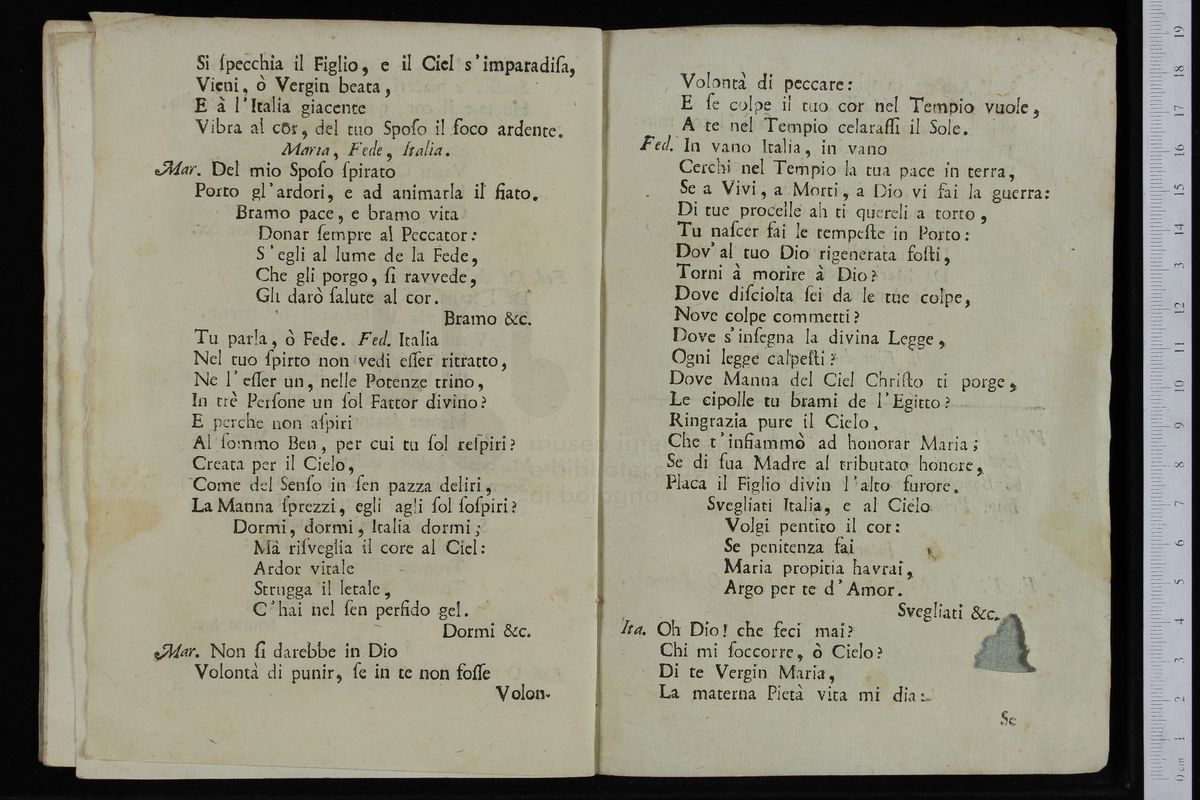 Si ſpecchia il Figlio, e il Ciel s'imparadiſa,
Vieni, ò Vergin beata,
E à l'Italia giacente
Vibra al cor, del tuo Spoſo il foco ardente.
Maria, Fede, Italia.
Mar. Del mio Spoſo ſpirato
Porto gl'ardori, e ad animarla il fiato.
Bramo pace, e bramo vita
Donar ſempre al Peccator:
S'egli al lume de la Fede,
Che gli porgo, ſi ravvede,
Gli darò ſalute al cor.
Bramo &c.
Tu parla, ò Fede. Fed. Italia
Nel tuo ſpirto non vedi eſſer ritratto,
Ne l'eſſer un, nelle Potenze trino,
In trè Perſone un ſol Fattor divino?
E perche non aſpiri
Al ſommo Ben, per cui tu ſol reſpiri?
Creata per il Cielo,
Come del Senſo in ſen pazza deliri,
La Manna ſprezzi, egli agli ſol ſoſpiri?
Dormi, dormi, Italia dormi;
Mà riſveglia il core al Ciel:
Ardor vitale
Strugga il letale,
C'hai nel ſen perfido gel.
Dormi &c.
Mar. Non ſi darebbe in Dio
Volontà di punir, ſe in te non foſſe
Volon-
Volontà di peccare:
E ſe colpe il tuo cor nel Tempio vuole,
A te nel Tempio celaraſſi il Sole.
Fed. In vano Italia, in vano
Cerchi nel Tempio la tua pace in terra,
Se a Vivi, a Morti, a Dio vi fai la guerra:
Di tue procelle ah ti quereli a torto,
Tu naſcer fai le tempeſte in Porto:
Dov'al tuo Dio rigenerata foſti,
Torni à morire à Dio?
Dove diſciolta ſei da le tue colpe,
Nove colpe commetti?
Dove s'inſegna la divina Legge,
Ogni legge calpeſti?
Dove Manna del Ciel Chriſto ti porge,
Le cipolle tu brami de l'Egitto?
Ringrazia pure il Cielo,
Che t'infiammò ad honorar Maria;
Se di ſua Madre al tributato honore,
Placa il Figlio divin l'alto furore.
Svegliati Italia, e al Cielo
Volgi pentito il cor:
Se penitenza fai
Maria propitia havrai,
Argo per te d'Amor.
Svegliati &c.
Ita. Oh Dio! che feci mai?
Chi mi ſoccorre, ò Cielo?
Di te Vergin Maria,
La materna Pietà vita mi dia:
Se